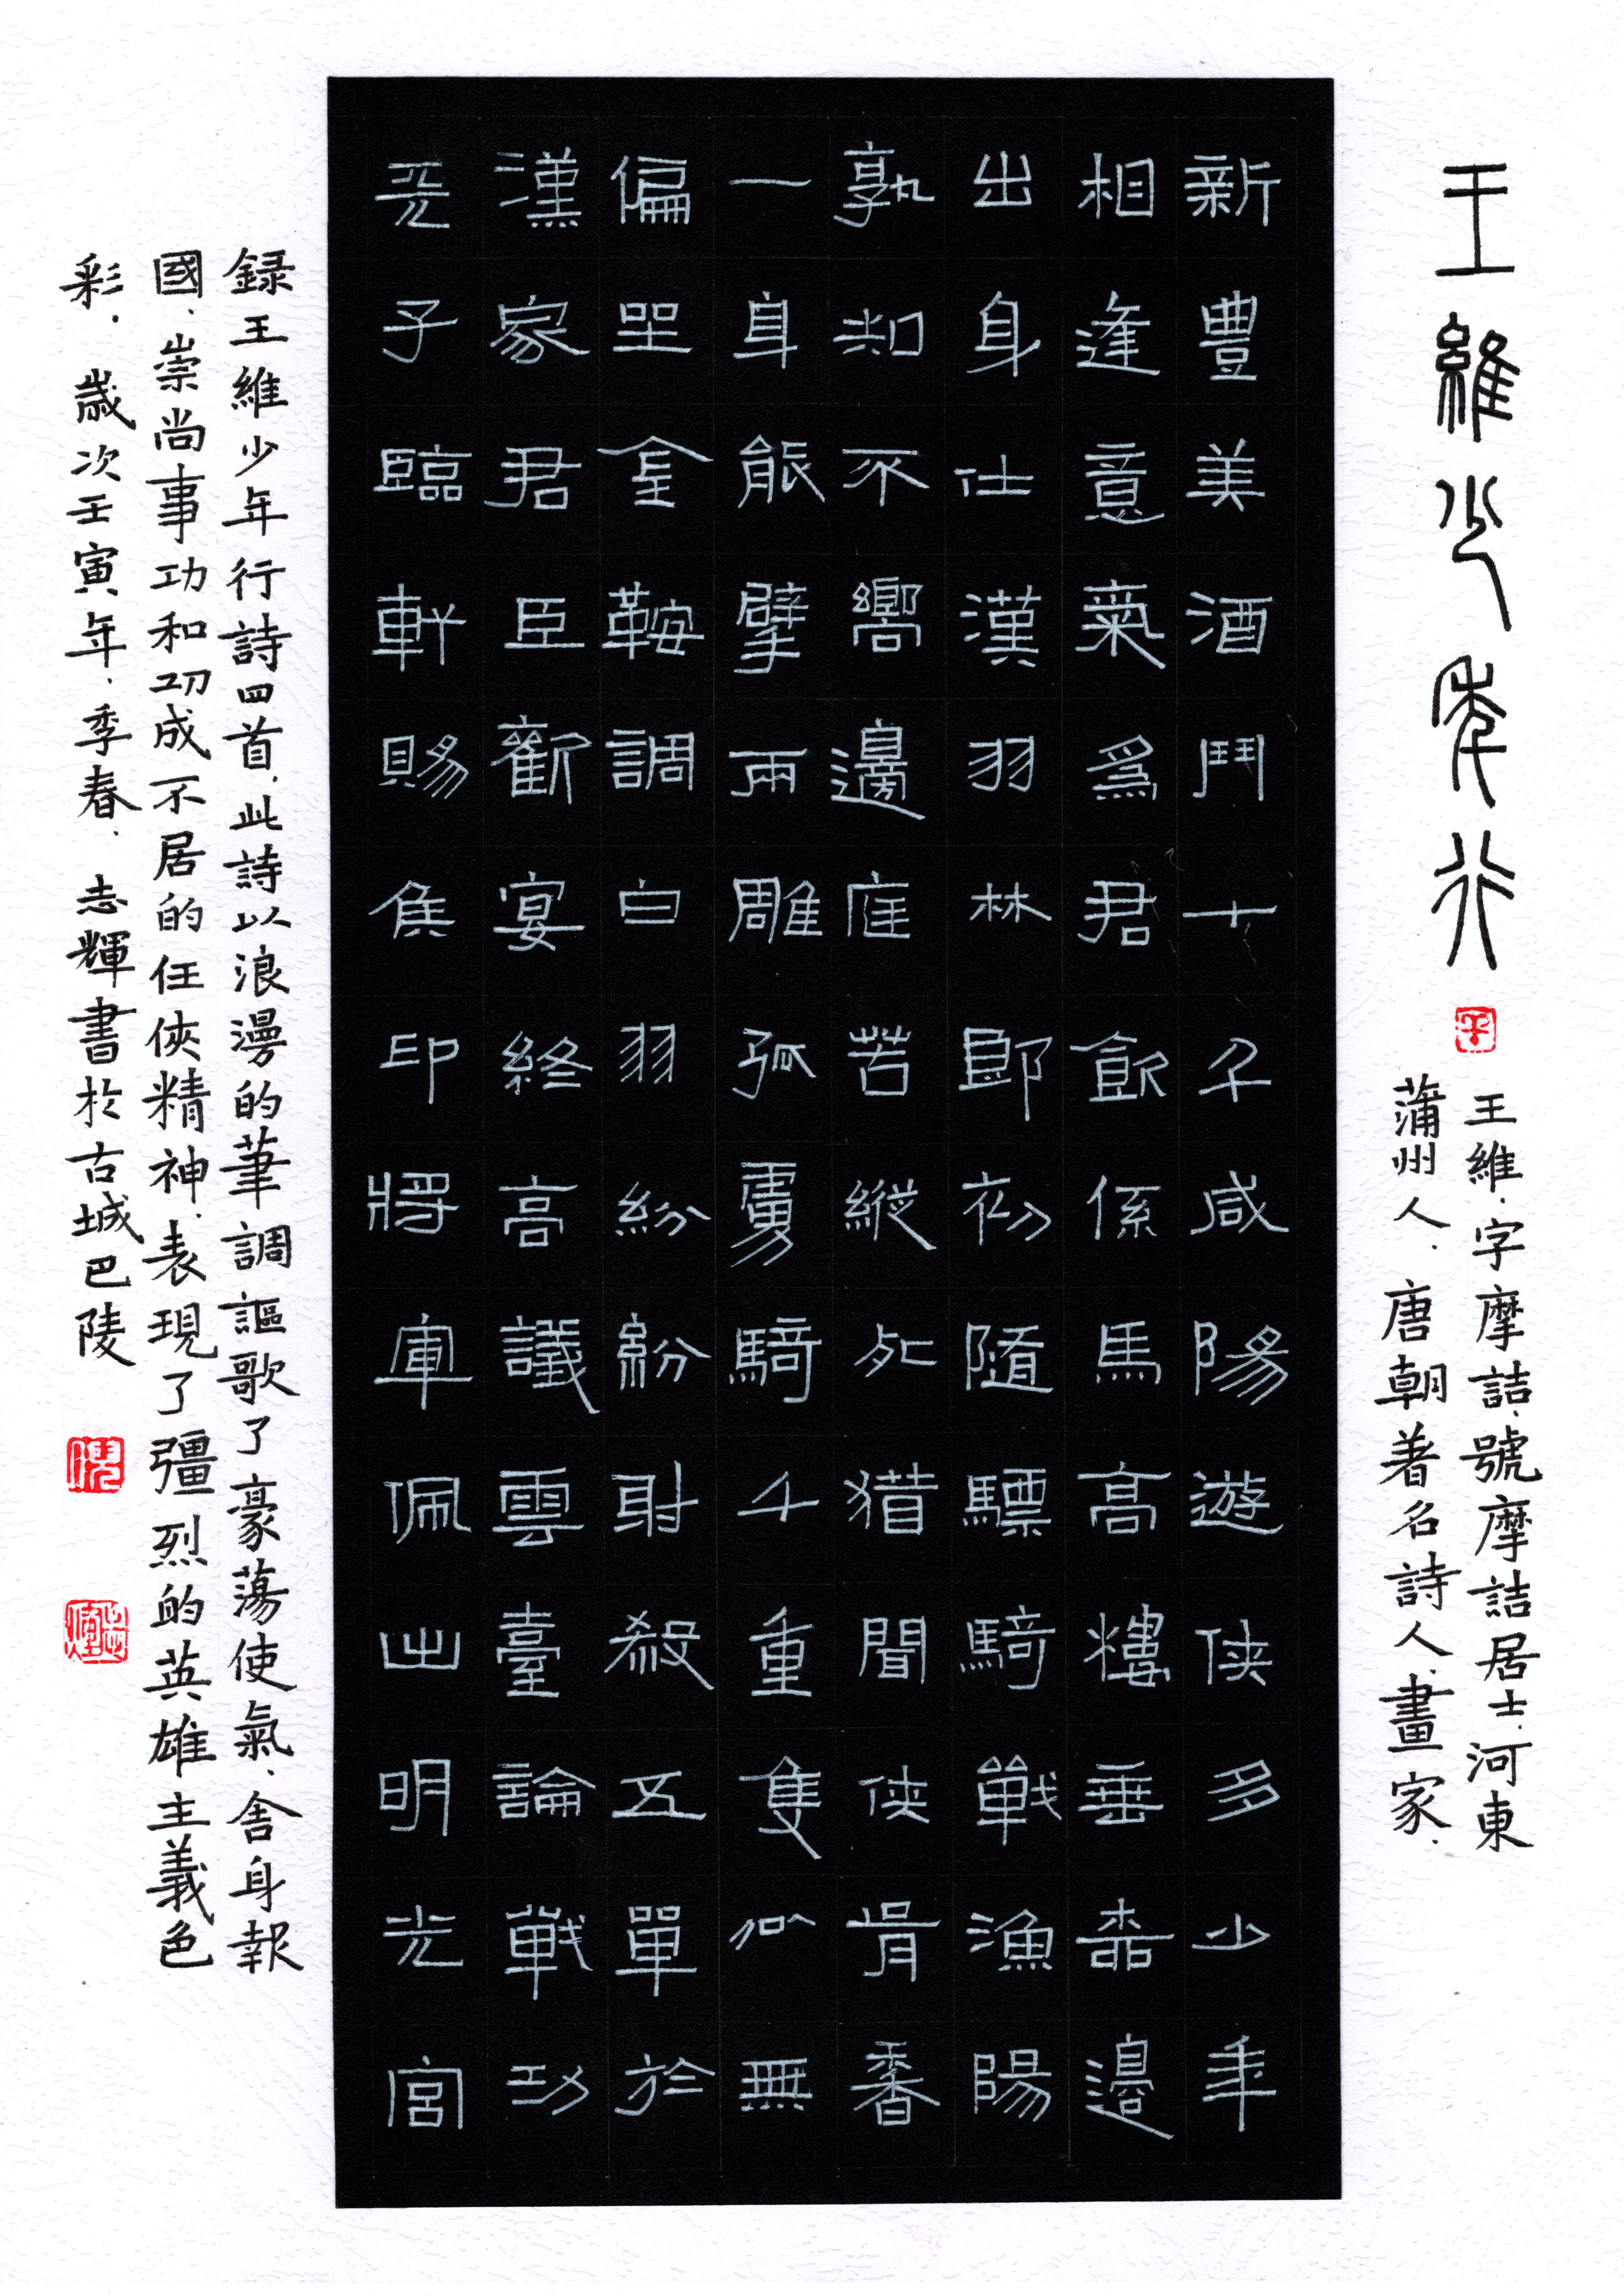 王維少年行
王維,字摩詰,號摩詰居士,河東
蒲州人,唐朝著名詩人,畫家.
新豊美酒鬥十千咸陽遊俠多少年
相逢意氣爲君飲係馬高樓垂桺邊
出身仕漢羽林郎初隨驃騎戰漁陽
孰知不嚮邊庭苦縱死猶聞俠骨香
一身能擘兩雕弧虜騎千重隻似無
偏坐金鞍調白羽紛紛射殺五單於
漢家君臣歡宴終高議雲臺論戰功
天子臨軒賜侯印將軍佩出明光宮
録王維少年行詩四首,此詩以浪漫的筆調謳歌了豪蕩使氣、舍身報
國、崇尚事功和功成不居的任俠精神,表現了彊烈的英雄主義色
彩.歲次壬寅年.季春.志輝書於古城巴陵